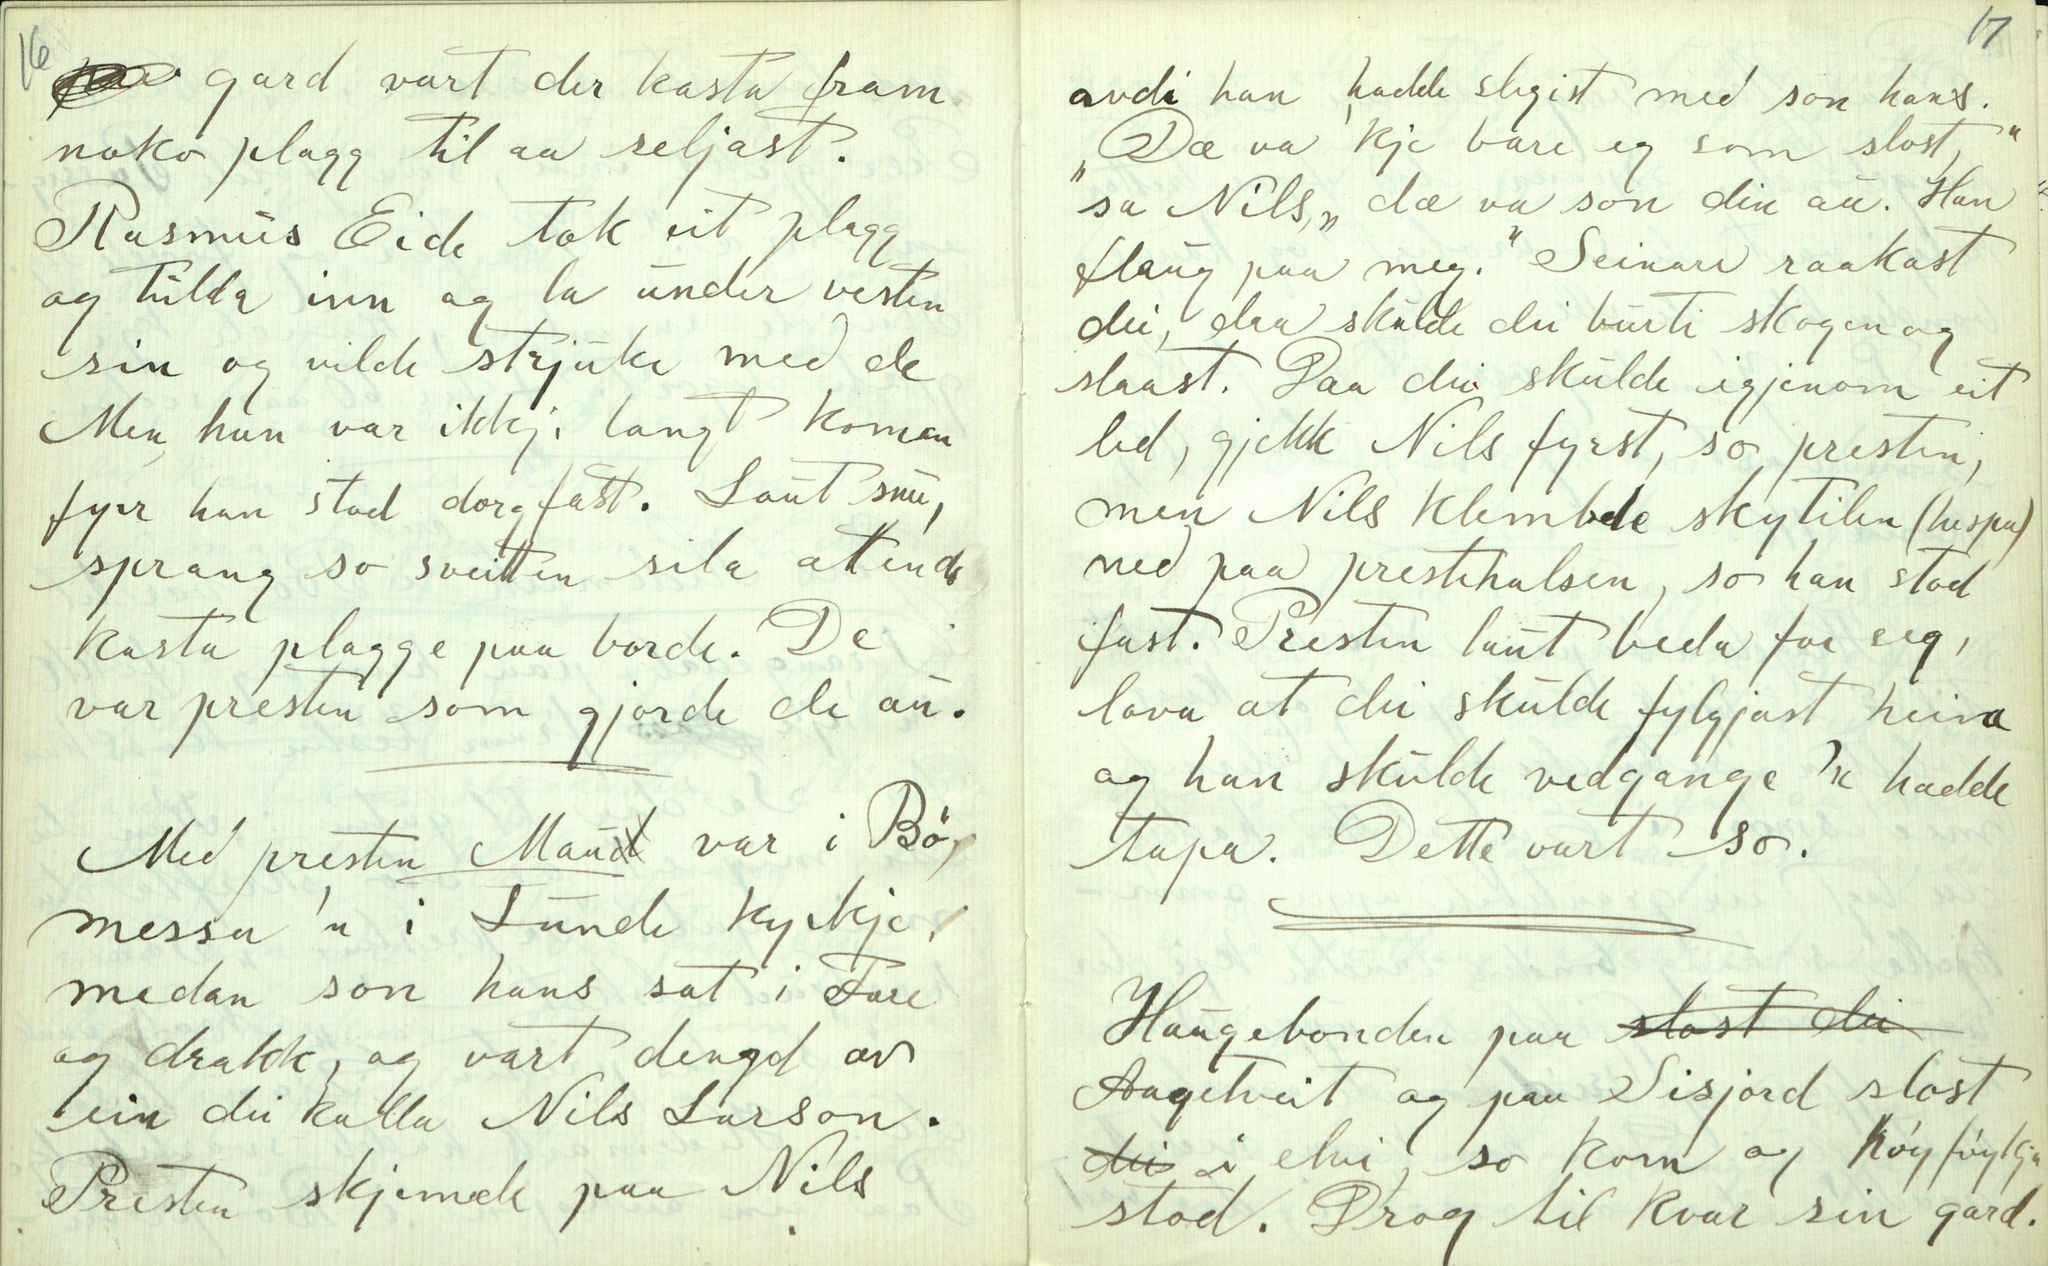 16
gard vart der kasta fram
noko plagg til aa seljast.
Rasmus Eide tok eit plagg
og tulla inn og la under vesten
sin og vilde strjuke med de
Men han var ikkje langt komen
fyrr han stod dorgfast. Laut snu,
sprang so sveitten sila attende
kasta plagge paa borde. De
var presten som gjorde de au.
Med presten Maud var i Bö,
messa 'n i Lunde kyrkje,
medan son hans sat i Fare
og drakk, og vart dengd av
ein dei kalla Nils Larson.
Presten skjemde paa Nils
17
avdi han hadde slegist med son hans.
"Dæ va 'kje bare eg som slost,"
sa Nils, "dæ va son din au. Han
flaug paa meg." Seinare raakast
dei, daa skulde dei burti skogen og
slaast. Daa dei skulde igjenom eit
led, gjekk Nils fyrst, so presten,
men Nils klembde skytilen (hespa)
ned paa prestehalsen, so han stod
fast. Presten laut beda for seg,
lova at dei skulde fylgjast heim
og han skulde vedgange 'n hadde
tapa. Dette vart so.
Haugebonden paa slost dei
Aagetveit og paa Sisjord slost
dei i elvi, so korn og höyföykja
stod. Drog til kvar sin gard.